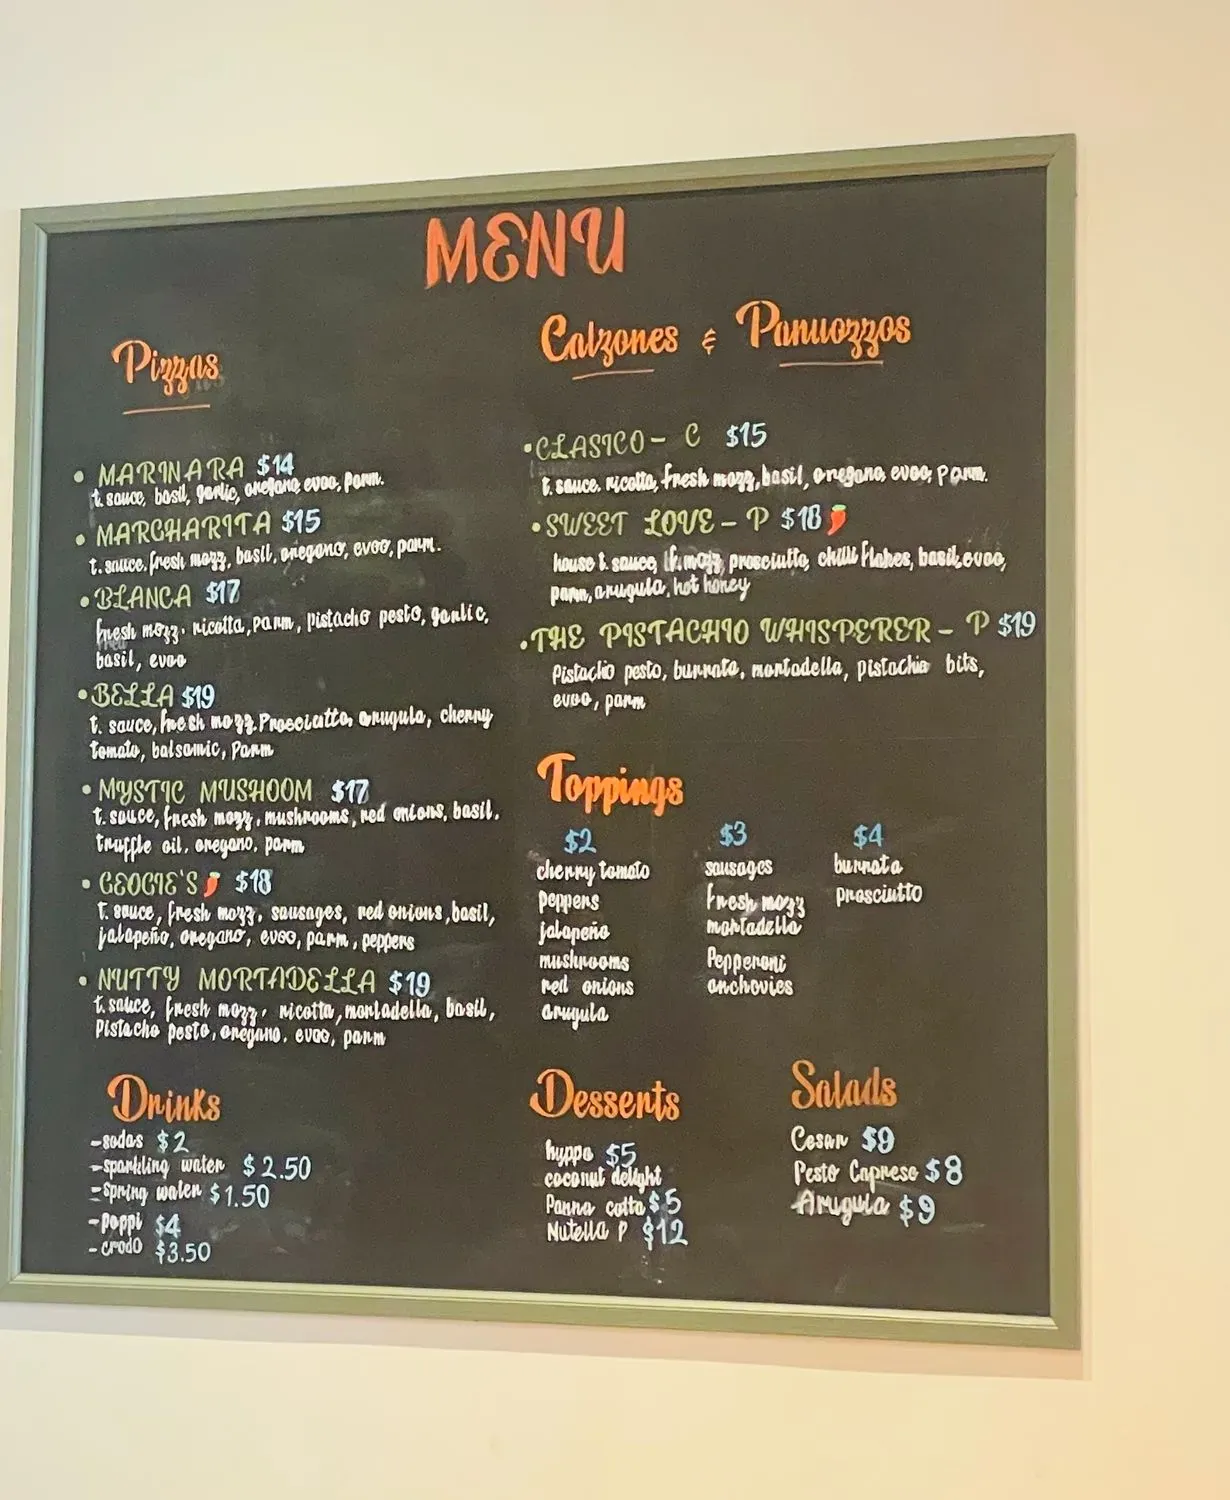 MENU
Pizzas
• MARINARA $14
t. sauce, basil, garlic, oregano, evoo, parm.
• MARGHARITA $15
t. sauce, fresh mozz, basil, oregano, evoo, parm.
• BLANCA $17
fresh mozz. ricotta, parm, pistacho pesto, garlic,
basil, evoo
• BELLA $19
t. sauce, fresh mozz. Prosciutto, arugula, cherry
tomato, balsamic, Parm
• MYSTIC MUSHOOM $17
t. sauce, fresh mozz, mushrooms, red onions, basil.
truffle oil. oregano, parm
• GEOGIE'S $18
t. sauce, fresh mozz. sausages, red onions, basil,
jalapeño, oregano, evoo, parm, peppers
• NUTTY MORTADELLA $19
t. sauce, fresh mozz, ricotta, mortadella, basil,
Pistacho pesto, oregano. evoo, parm
Drinks
- sodas $2
- sparkling water $2.50
- spring water $1.50
- poppi $4
- crodo $3.50
Calzones & Panuozzos
• CLASICO - C $15
t. sauce. ricotta, fresh mozz, basil, oregano, evoo, parm.
• SWEET LOVE - P $18
house t. sauce, f. mozz, prosciutto, chilli flakes, basil, evoo,
parm, arugula, hot honey
• THE PISTACHIO WHISPERER - P $19
Pistachio pesto, burrata, mortadella, pistachio bits,
evoo, parm
Toppings
$2
cherry tomato
peppers
jalapeño
mushrooms
red onions
arugula
$3
sausages
fresh mozz
mortadella
Pepperoni
anchovies
$4
burrata
prosciutto
Desserts
hyppo $5
coconut delight
Panna cotta $5
Nutella P $12
Salads
Cesar $9
Pesto Caprese $8
Arugula $9